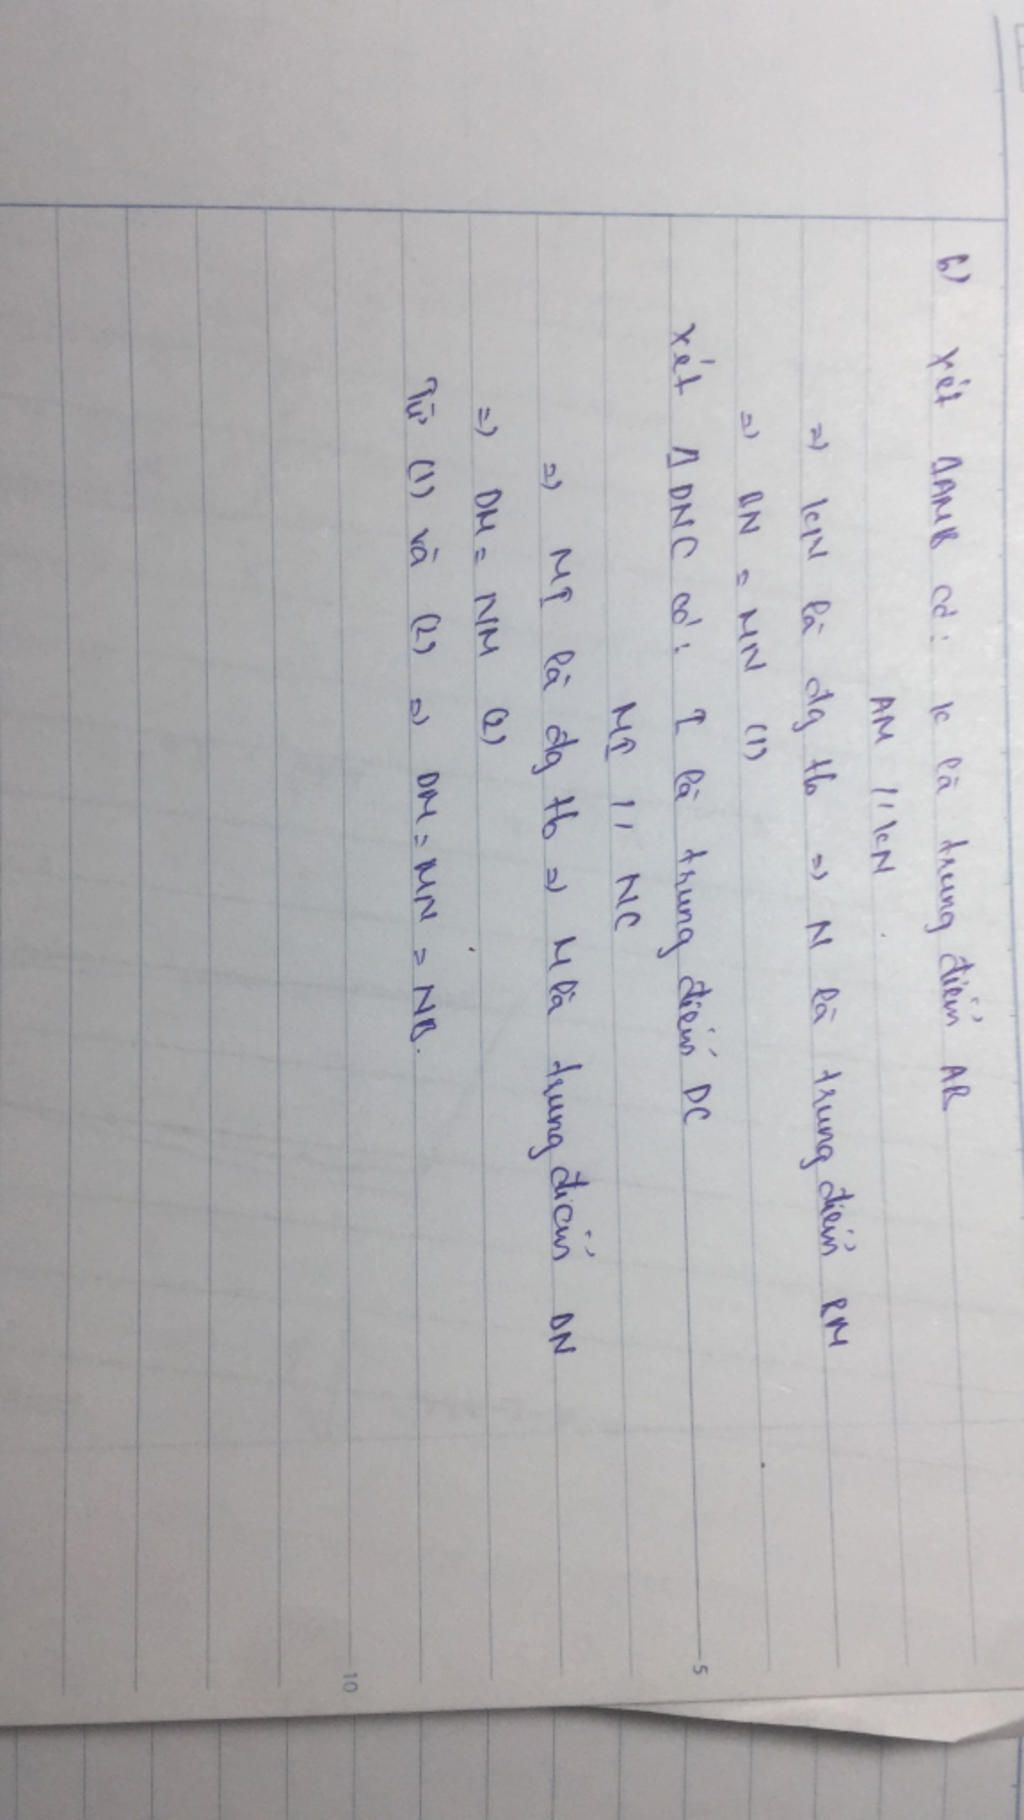 b) xét ΔAMB có: K là trung điểm AB
AM // KN
=> KN là đg tb => N là trung điểm BM
=> BN = MN (1)
xét ΔDNC có: I là trung điểm DC
MI // NC
=> MI là đg tb => M là trung điểm DN
=> DM = NM (2)
Từ (1) và (2) => DM = MN = NB.
5
10